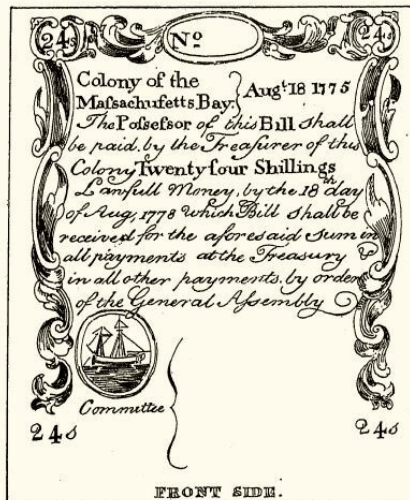 24s Nº 24s
Colony of the
Maſsachuſetts Bay. } Augt. 18 1775
The Poſseſsor of this Bill Shall
be paid, by the Treaſurer of this
Colony Twenty four Shillings
Lawfull Money, by the 18th day
of Aug, 1778 which Bill shall be
received for the aforesaid sum in
all payments at the Treasury &
in all other payments, by order
of the General Aſsembly
Committee
24s 24s
FRONT SIDE.